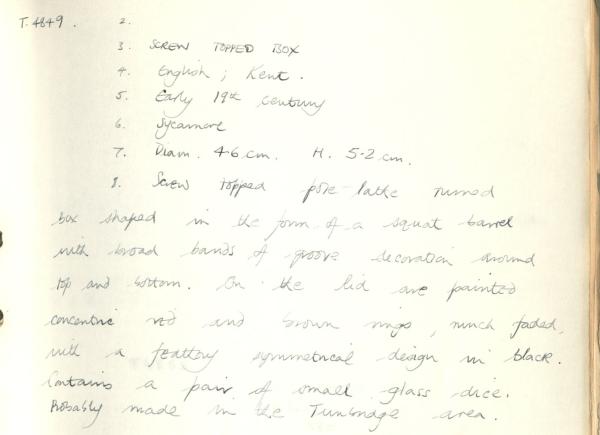 T.4849. 2.
3. SCREW TOPPED BOX
4. English ; Kent.
5. Early 19th century
6. Sycamore
7. Diam. 4.6 cm. H. 5.2 cm.
8. Screw topped pole-lathe turned
box shaped in the form of a squat barrel
with broad bands of groove decoration around
top and bottom. On the lid are painted
concentric red and brown rings, much faded,
with a feathery symmetrical design in black.
Contains a pair of small glass dice.
Probably made in the Tunbridge area.